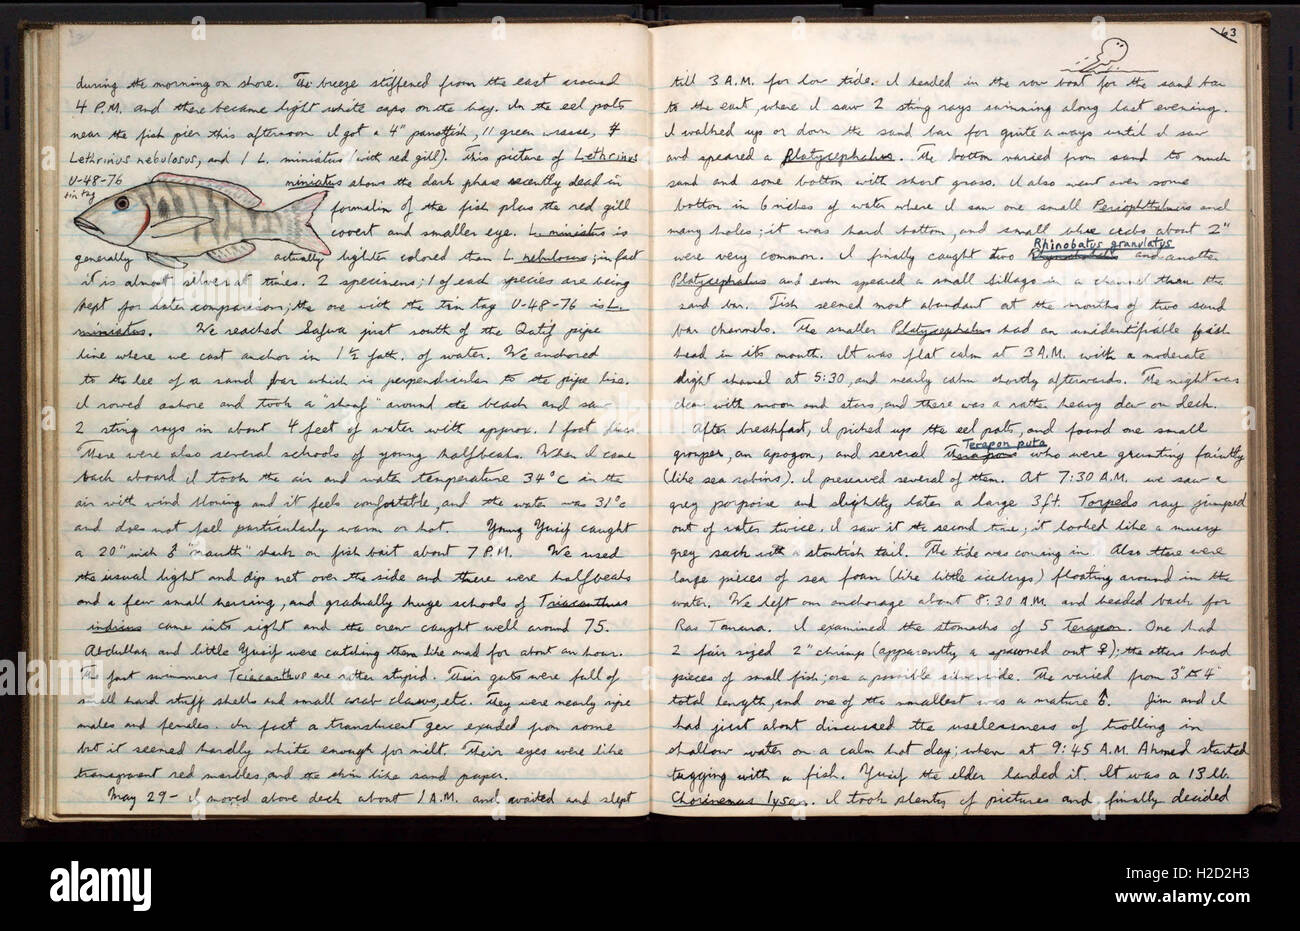 during the morning on shore. The breeze stiffened from the east around
4 P.M. and there became light white caps on the bay. In the eel pots
near the fish pier this afternoon I got a 4" parrotfish, 11 green wrasse, 7
Lethrinus nebulosus, and 1 L. miniatus (with red gill). This picture of Lethrinus
U-48-76
tin tag
miniatus shows the dark phase recently dead in
formalin of the fish plus the red gill
covert and smaller eye. L. miniatus is
generally actually lighter colored than L. nebulosus; in fact
it is almost silver at times. 2 specimens; 1 of each species are being
kept for later comparison; the one with the tin tag U-48-76 is L.
miniatus. We reached Safwa just south of the Qatif pipe
line where we cast anchor in 1 1/2 fath. of water. We anchored
to the lee of a sand bar which is perpendicular to the pipe line.
I rowed ashore and took a around the beach and saw
2 sting rays in about 4 feet of water with approx. 1 foot
There were also several schools of young halfbeaks. When I came
back aboard I took the air and water temperature 34°C in the
air with wind blowing and it feels comfortable, and the water was 31°C
and does not feel particularly warm or hot. Young Yusif caught
a 20" inch ♂ shark on fish bait about 7 P.M. We used
the usual light and dip net over the side and there were halfbeaks
and a few small herring, and gradually huge schools of Triacanthus
indicus came into sight and the crew caught well around 75.
Abdullah and little Yusif were catching them like mad for about an hour.
The fast swimmers Triacanthus are rather stupid. Their guts were full of
small hard stuff shells and small crab claws, etc. They were nearly ripe
males and females. In fact a translucent exuded from some
but it seemed hardly white enough for milt. Their eyes were like
transparent red marbles, and the skin like sand paper.
May 29 - I moved above deck about 1 A.M. and waited and slept
63
till 3 A.M. for low tide. I headed in the row boat for the sand bar
to the east, where I saw 2 sting rays swimming along last evening.
I walked up or down the sand bar for quite a ways until I saw
and speared a Platycephalus. The bottom varied from sand to much
sand and some bottom with short grass. I also went over some
bottom in 6 inches of water where I saw one small Periophthalmus and
many holes; it was hard bottom, and small blue crabs about 2"
Rhinobatus granulatus
were very common. I finally caught two and another
Platycephalus and even speared a small Sillago in a channel thru the
sand bar. Fish seemed most abundant at the mouths of two sand
bar channels. The smaller Platycephalus had an unidentifiable fish
head in its mouth. It was flat calm at 3 A.M. with a moderate
slight shamal at 5:30, and nearly calm shortly afterwards. The night was
clear with moon and stars, and there was a rather heavy dew on deck.
After breakfast, I picked up the eel pots, and found one small
Terapon puta
grouper, an apogon, and several who were grunting faintly
(like sea robins). I preserved several of them. At 7:30 A.M. we saw a
grey porpoise and slightly later a large 3 ft. Torpedo ray jumped
out of water twice. I saw it the second time; it looked like a mussy
grey sack with a stoutish tail. The tide was coming in. Also there were
large pieces of sea foam (like little icebergs) floating around in the
water. We left our anchorage about 8:30 A.M. and headed back for
Ras Tanura. I examined the stomachs of 5 Terapon. One had
2 fair sized 2" shrimp (apparently a spawned out ♀); the others had
pieces of small fish; one a possible silverside. The varied from 3" to 4"
total length, and one of the smallest was a mature ♂. Jim and I
had just about discussed the uselessness of trolling in
shallow water on a calm hot day; when at 9:45 A.M. Ahmed started
tugging with a fish. Yusif the elder landed it. It was a 13 lb.
Chorinemus lysan. I took plenty of pictures and finally decided
alamy
Image ID: H2D2H3
www.alamy.com